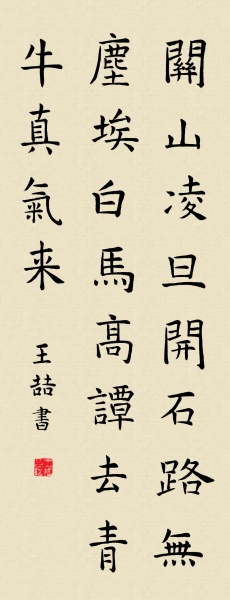 關山凌旦開石路無
塵埃白馬高譚去青
牛真氣来
王喆書